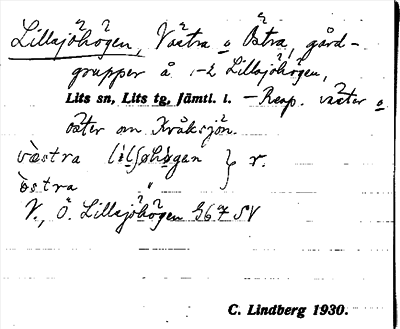 Lillsjöhögen, Västra o Östra, gård-
grupper å 1-2 Lillsjöhögen,
Lits sn, Lits tg, Jämtl. l. – Resp. väster o
öster om Kråksjön.
västra lilsjøhögan } r.
östra "
V., Ö. Lillsjöhögen 967 SV
C. Lindberg 1930.